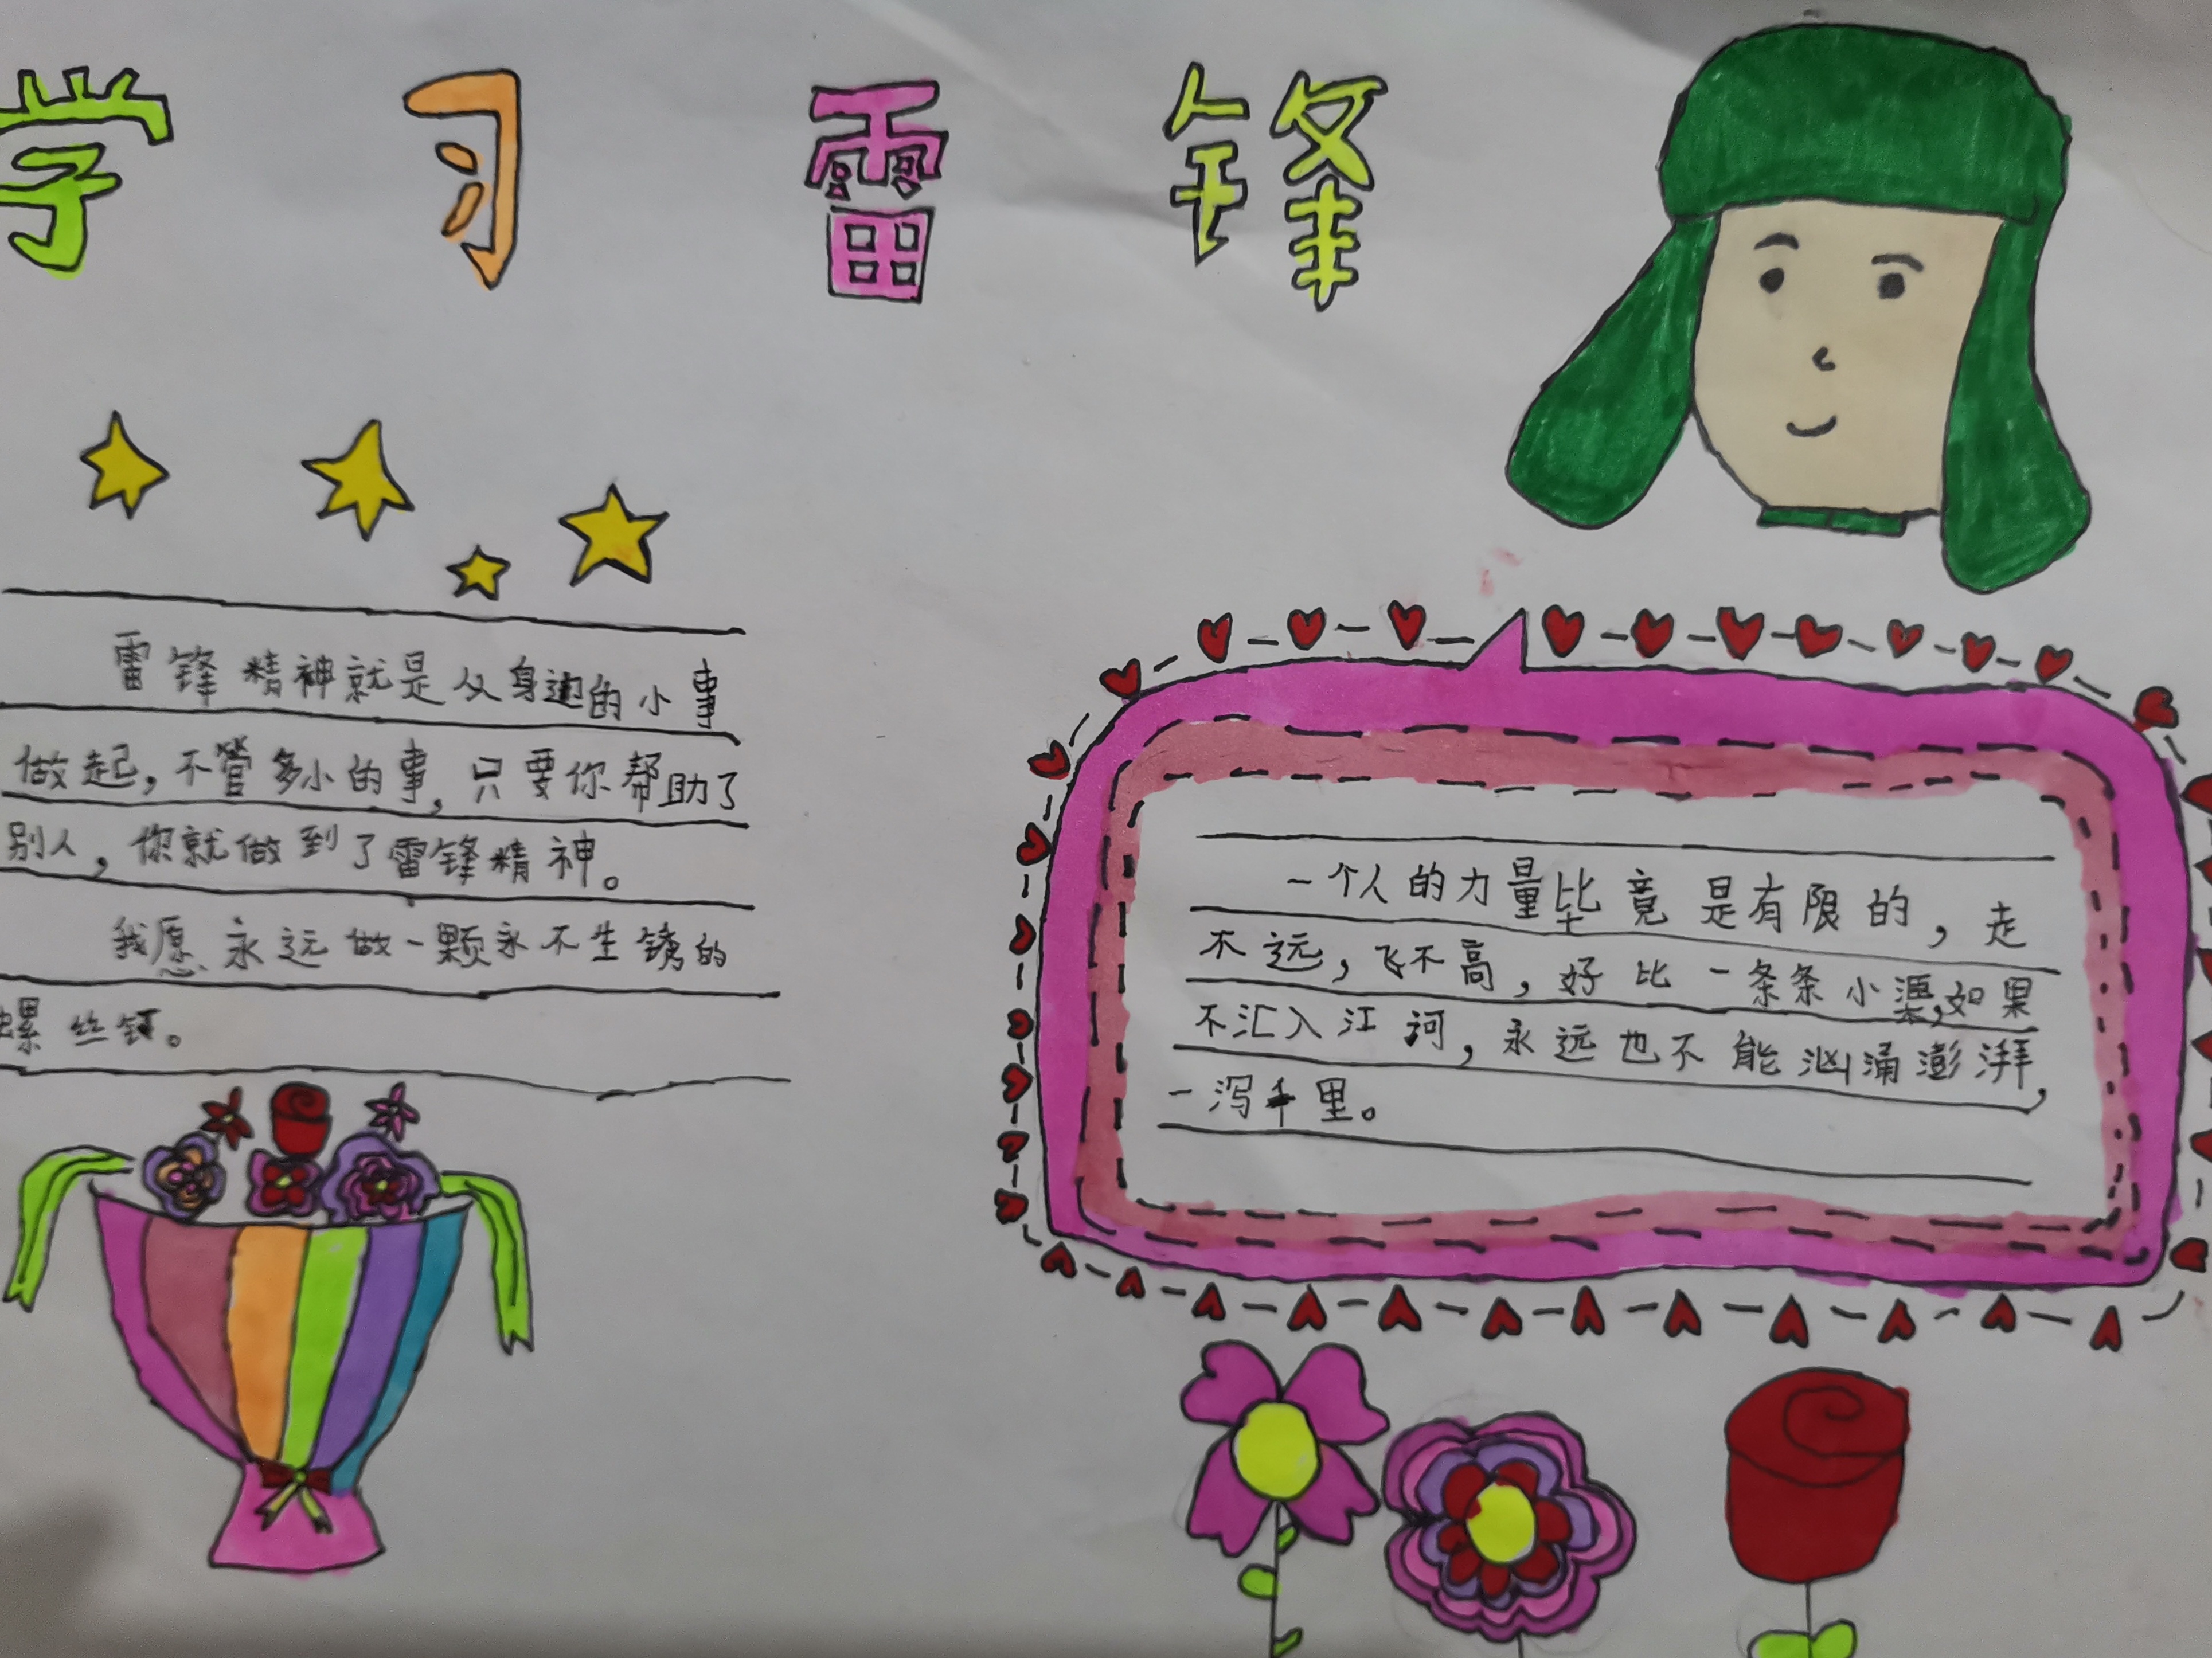 学习雷锋
雷锋精神就是从身边的小事
做起，不管多小的事，只要你帮助了
别人，你就做到了雷锋精神。
我愿永远做一颗永不生锈的
螺丝钉。
一个人的力量毕竟是有限的，走
不远，飞不高，好比一条条小渠，如果
不汇入江河，永远也不能汹涌澎湃，
一泻千里。